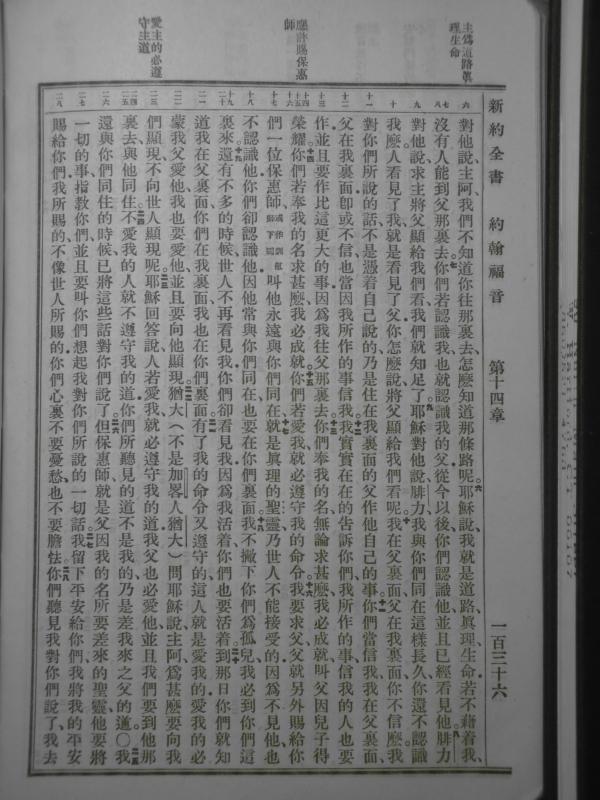 新約全書　約翰福音　第十四章　一百三十六
主爲道路眞理生命
應許賜保惠師
愛主的必遵守主道
對他說主阿我們不知道你往那裏去怎麽知道那條路呢耶穌說我就是道路眞理生命若不藉着我
沒有人能到父那裏去你們若認識我也就認識我的父從今以後你們認識他並且已經看見他腓力
對他說求主將父顯給我們看我們就知足了耶穌對他說腓力我與你們同在這樣長久你還不認識
我麽人看見了我就是看見了父你怎麽說將父顯給我們看呢我在父裏面父在我裏面你不信麽我
對你們所說的話不是憑着自己說的乃是住在我裏面的父作他自己的事你們當信我我在父裏面
父在我裏面卽或不信也當因我所作的事信我我實實在在的告訴你們我所作的事信我的人也要
作並且要作比這更大的事因爲我往父那裏去你們奉我的名無論求甚麽我必成就叫父因兒子得
榮耀你們若奉我的名求甚麽我必成就你們若愛我就必遵守我的命令我要求父父就另外賜給你
們一位保惠師或作訓慰師下同叫他永遠與你們同在就是眞理的聖靈乃世人不能接受的因爲不見他也
不認識他你們卻認識他因他常與你們同在也要在你們裏面我不撇下你們爲孤兒我必到你們這
裏來還有不多的時候世人不再看見我你們卻看見我因爲我活着你們也要活着到那日你們就知
道我在父裏面你們在我裏面我也在你們裏面有了我的命令又遵守的這人就是愛我的愛我的必
蒙我父愛他我也要愛他並且要向他顯現猶大（不是加畧人猶大）問耶穌說主阿爲甚麽要向我
們顯現不向世人顯現呢耶穌回答說人若愛我就必遵守我的道我父也必愛他並且我們要到他那
裏去與他同住不愛我的人就不遵守我的道你們所聽見的道不是我的乃是差我來之父的道〇我
還與你們同住的時候已將這些話對你們說了但保惠師就是父因我的名所要差來的聖靈他要將
一切的事指敎你們並且要叫你們想起我對你們所說的一切話我留下平安給你們我將我的平安
賜給你們我所賜的不像世人所賜的你們心裏不要憂愁也不要膽怯你們聽見我對你們說了我去